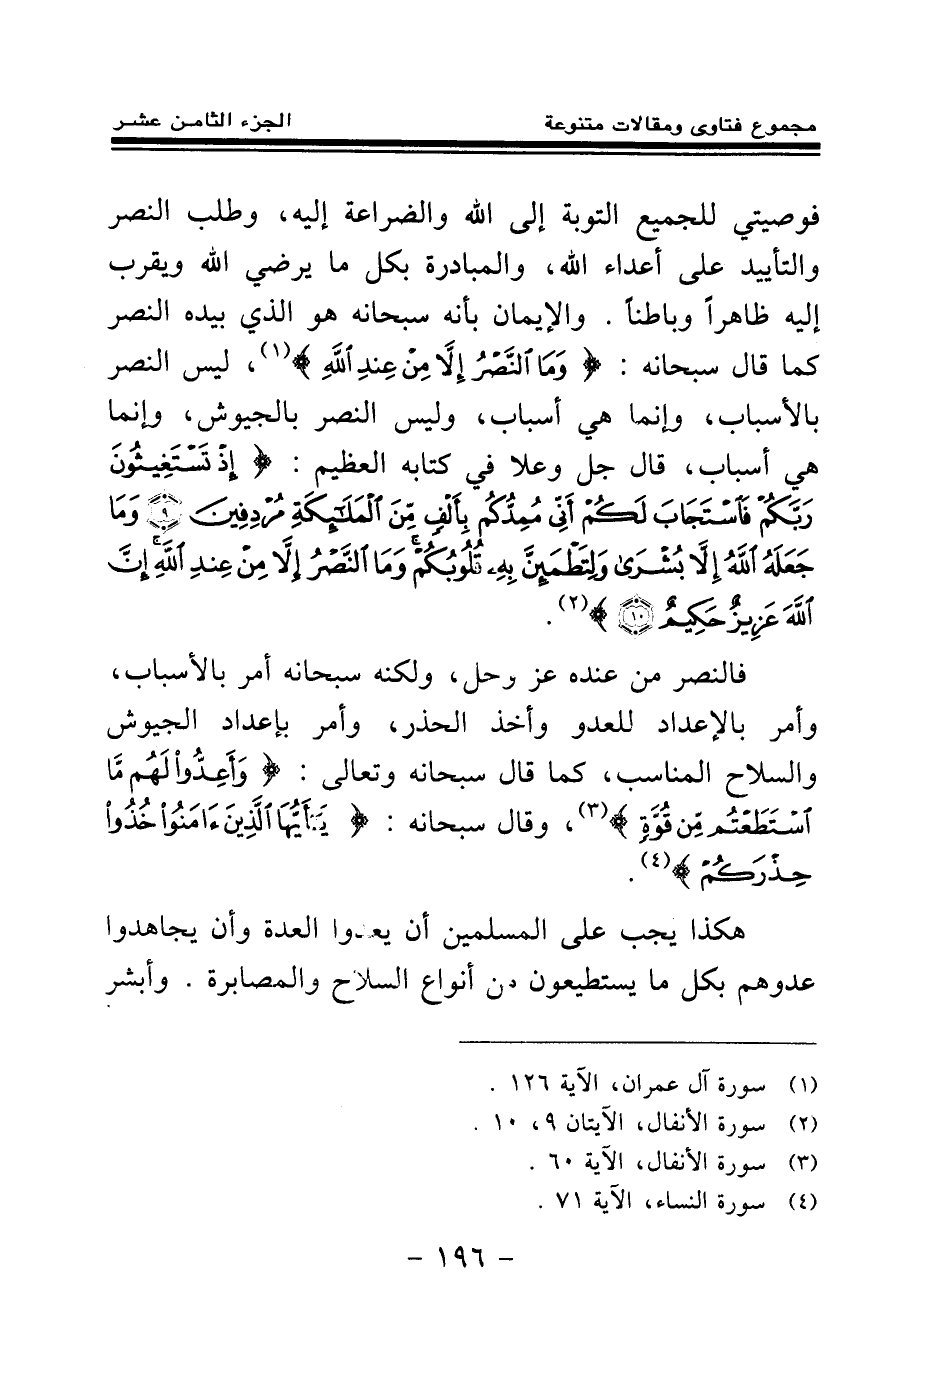 مجموع فتاوى ومقالات متنوعة الجزء الثامن عشر
فوصيتي للجميع التوبة إلى الله والضراعة إليه، وطلب النصر
والتأييد على أعداء الله، والمبادرة بكل ما يرضي الله ويقرب
إليه ظاهراً وباطناً . والإيمان بأنه سبحانه هو الذي بيده النصر
كما قال سبحانه : ﴿ وَمَا ٱلنَّصْرُ إِلَّا مِنْ عِندِ ٱللَّهِ ﴾(١)، ليس النصر
بالأسباب، وإنما هي أسباب، وليس النصر بالجيوش، وإنما
هي أسباب، قال جل وعلا في كتابه العظيم : ﴿ إِذْ تَسْتَغِيثُونَ
رَبَّكُمْ فَٱسْتَجَابَ لَكُمْ أَنِّي مُمِدُّكُم بِأَلْفٍ مِّنَ ٱلْمَلَٰٓئِكَةِ مُرْدِفِينَ ۝٩ وَمَا
جَعَلَهُ ٱللَّهُ إِلَّا بُشْرَىٰ وَلِتَطْمَئِنَّ بِهِۦ قُلُوبُكُمْ ۚ وَمَا ٱلنَّصْرُ إِلَّا مِنْ عِندِ ٱللَّهِ ۚ إِنَّ
ٱللَّهَ عَزِيزٌ حَكِيمٌ ۝١٠ ﴾(٢) .
فالنصر من عنده عز وجل، ولكنه سبحانه أمر بالأسباب،
وأمر بالإعداد للعدو وأخذ الحذر، وأمر بإعداد الجيوش
والسلاح المناسب، كما قال سبحانه وتعالى : ﴿ وَأَعِدُّوا۟ لَهُم مَّا
ٱسْتَطَعْتُم مِّن قُوَّةٍ ﴾(٣)، وقال سبحانه : ﴿ يَٰٓأَيُّهَا ٱلَّذِينَ ءَامَنُوا۟ خُذُوا۟
حِذْرَكُمْ ﴾(٤) .
هكذا يجب على المسلمين أن يعدوا العدة وأن يجاهدوا
عدوهم بكل ما يستطيعون من أنواع السلاح والمصابرة . وأبشر
(١) سورة آل عمران، الآية ١٢٦ .
(٢) سورة الأنفال، الآيتان ٩، ١٠ .
(٣) سورة الأنفال، الآية ٦٠ .
(٤) سورة النساء، الآية ٧١ .
– ١٩٦ –